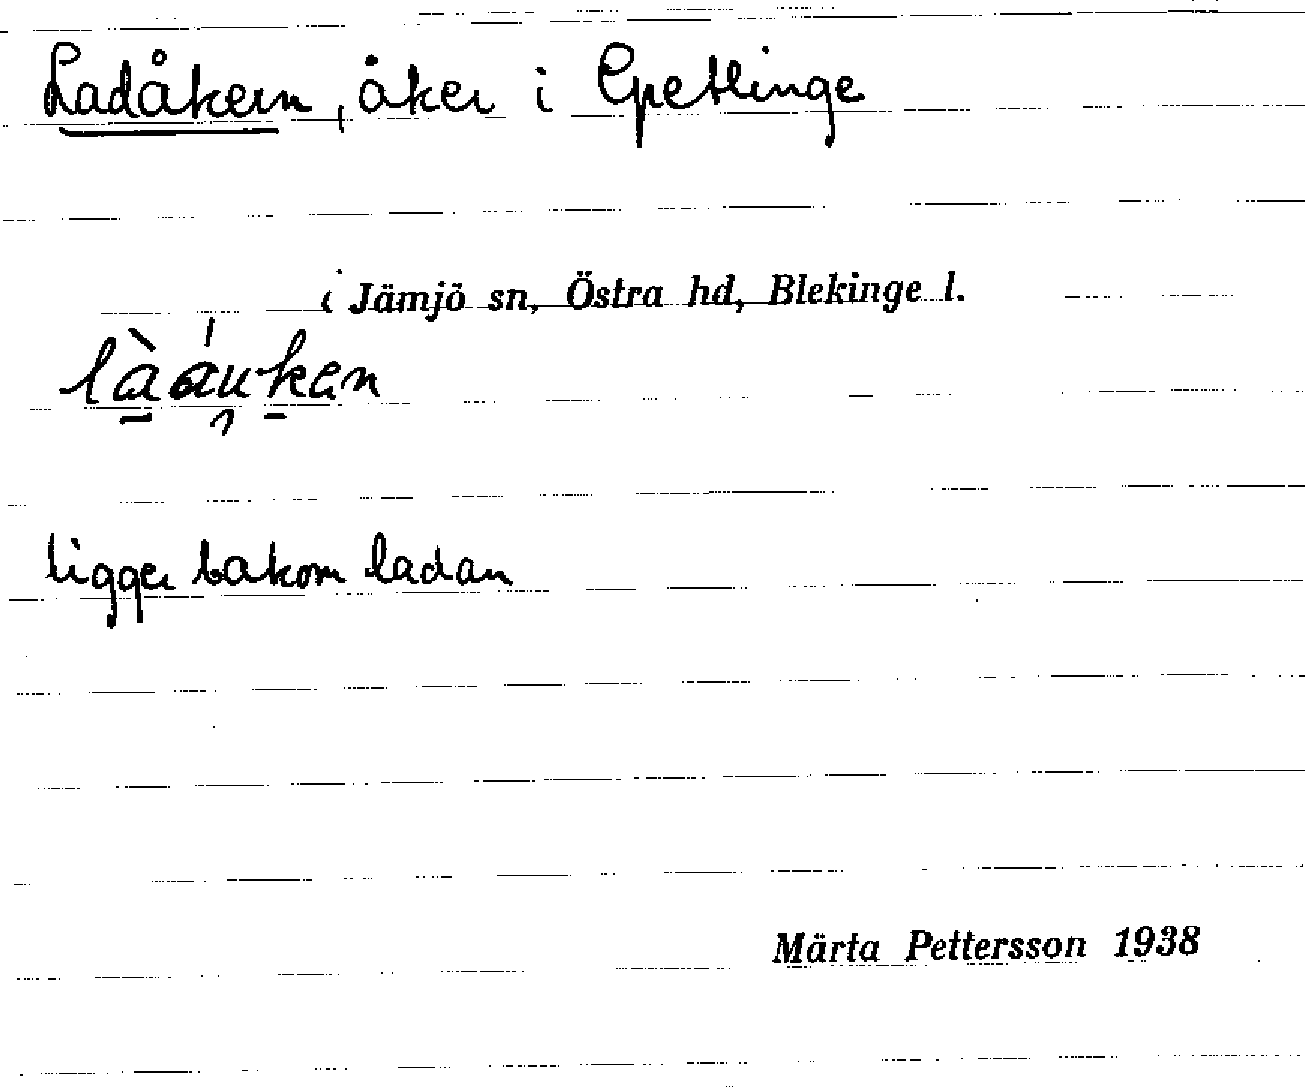 Ladåkern, åker i Gretlinge
i Jämjö sn, Östra hd, Blekinge l.
ligger bakom ladan
Märta Pettersson 1938